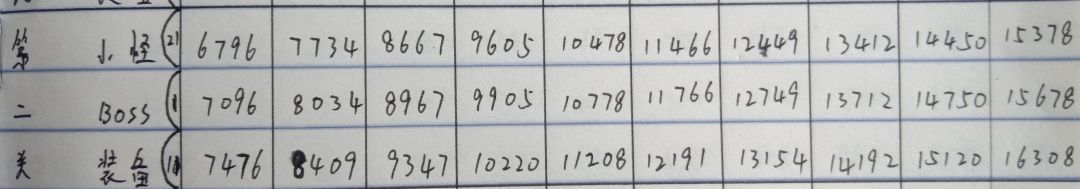 第 小怪 (21 6796 7734 8667 9605 10478 11466 12449 13412 14450 15378
二 Boss (1 7096 8034 8967 9905 10778 11766 12749 13712 14750 15678
关 装 7476 8409 9347 10220 11208 12191 13154 14192 15120 16308